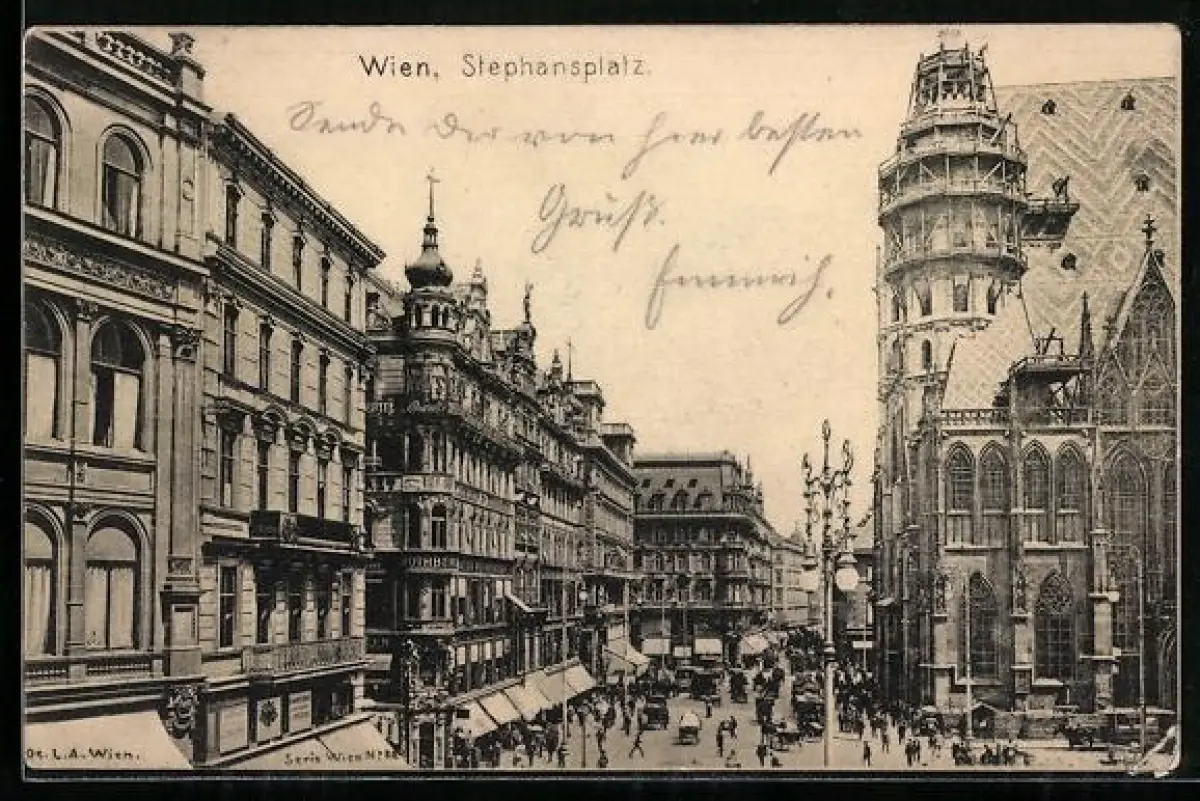 Wien, Stephansplatz.
Sende Dir von hier besten
Gruß.
De. L.A. Wien.
Serie Wien No